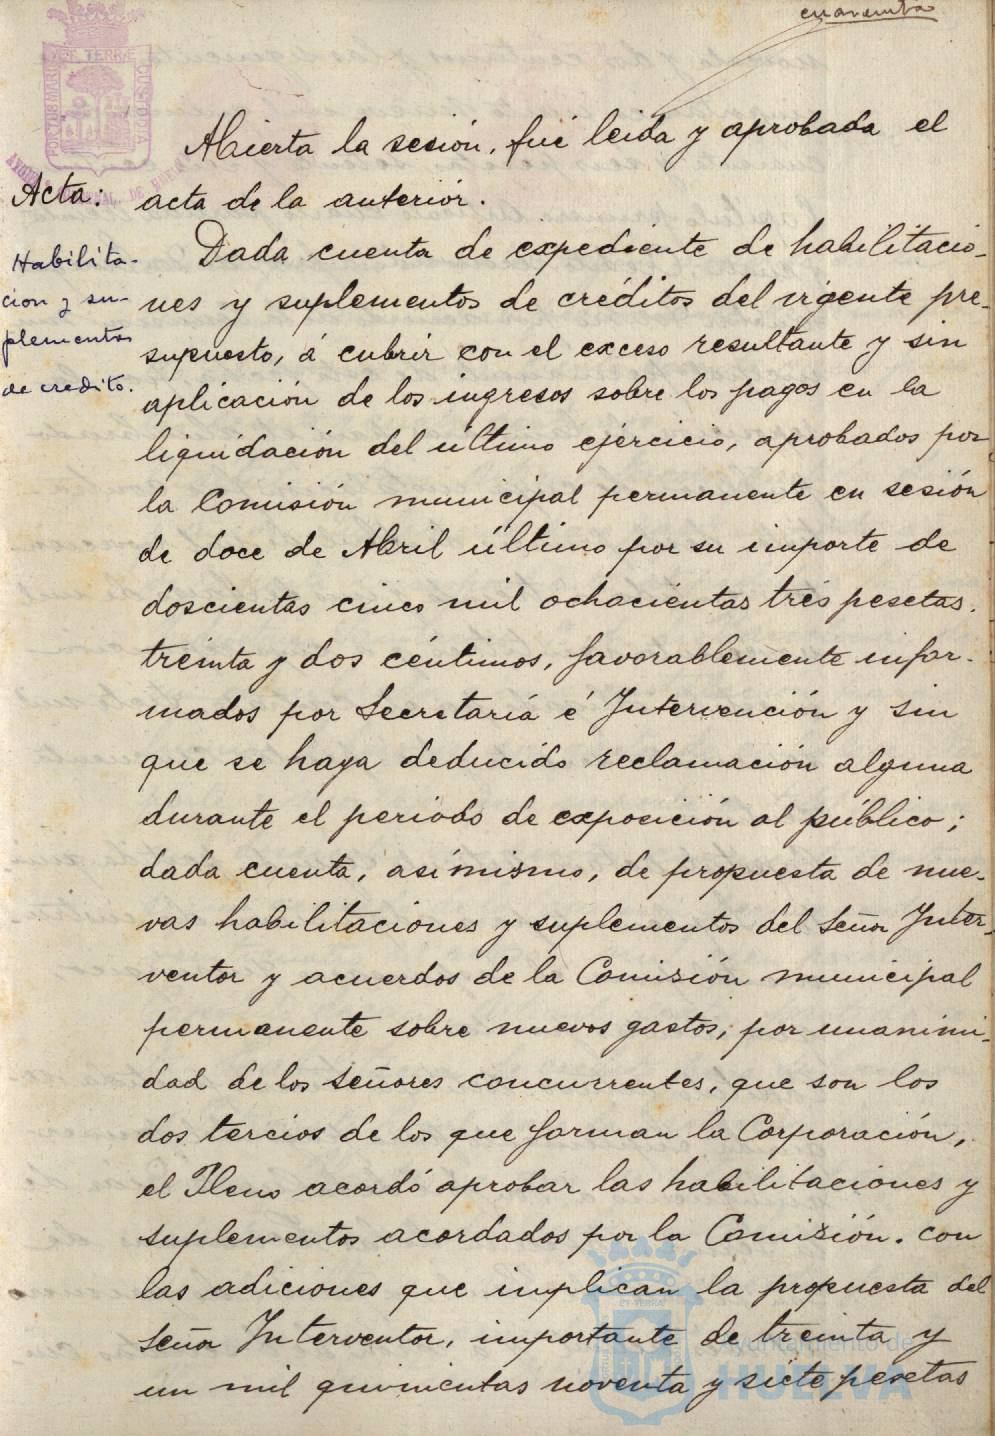 cuarenta
Abierta la sesión, fué leida y aprobada el
Acta: acta de la anterior.
Dada cuenta de expediente de habilitacio-
Habilita-
cion y su-
plementos
de credito.
nes y suplementos de créditos del vigente pre-
supuesto, á cubrir con el exceso resultante y sin
aplicación de los ingresos sobre los pagos en la
liquidación del último ejercicio, aprobados por
la Comisión municipal permanente en sesión
de doce de Abril último por su importe de
doscientas cinco mil ochocientas tres pesetas,
treinta y dos céntimos, favorablemente infor-
mados por Secretaría é Intervención y sin
que se haya deducido reclamación alguna
durante el periodo de exposición al público;
dada cuenta, asímismo, de propuesta de nue-
vas habilitaciones y suplementos del Señor Inter-
ventor y acuerdos de la Comisión municipal
permanente sobre nuevos gastos, por unanimi-
dad de los señores concurrentes, que son los
dos tercios de los que forman la Corporación,
el Pleno acordó aprobar las habilitaciones y
suplementos acordados por la Comisión, con
las adiciones que implican la propuesta del
Señor Interventor, importante de treinta y
un mil quinientas noventa y siete pesetas
Ayuntamiento de
HUELVA